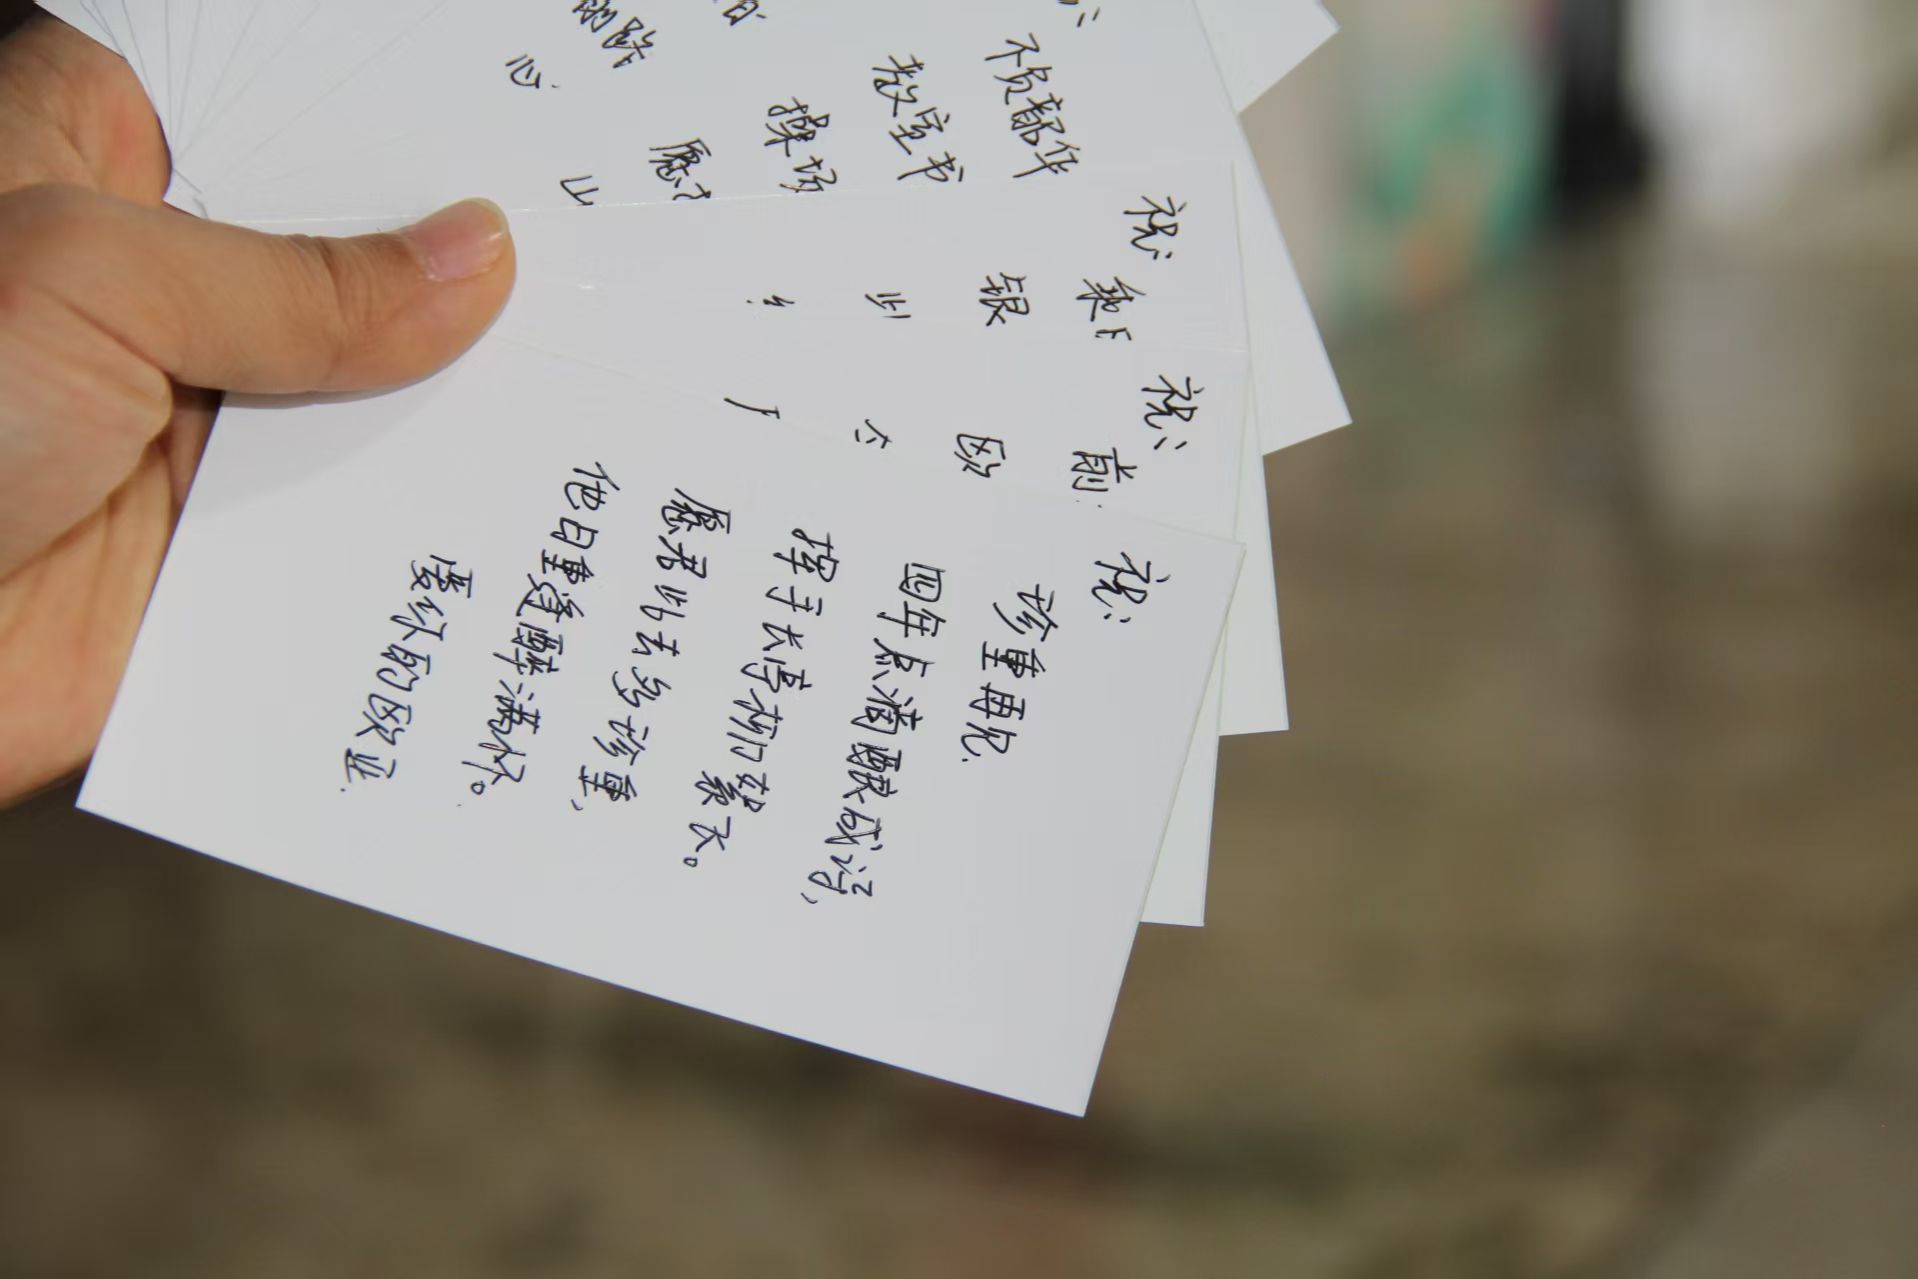 不负韶华
教室书
操场
愿
山
心
祝:
乘
银
祝:
前
欧
祝:
珍重再见.
四年点滴酿成诗,
挥手长亭柳絮飞。
愿君此去多珍重,
他日重逢醉满杯。
爱你的欧亚.